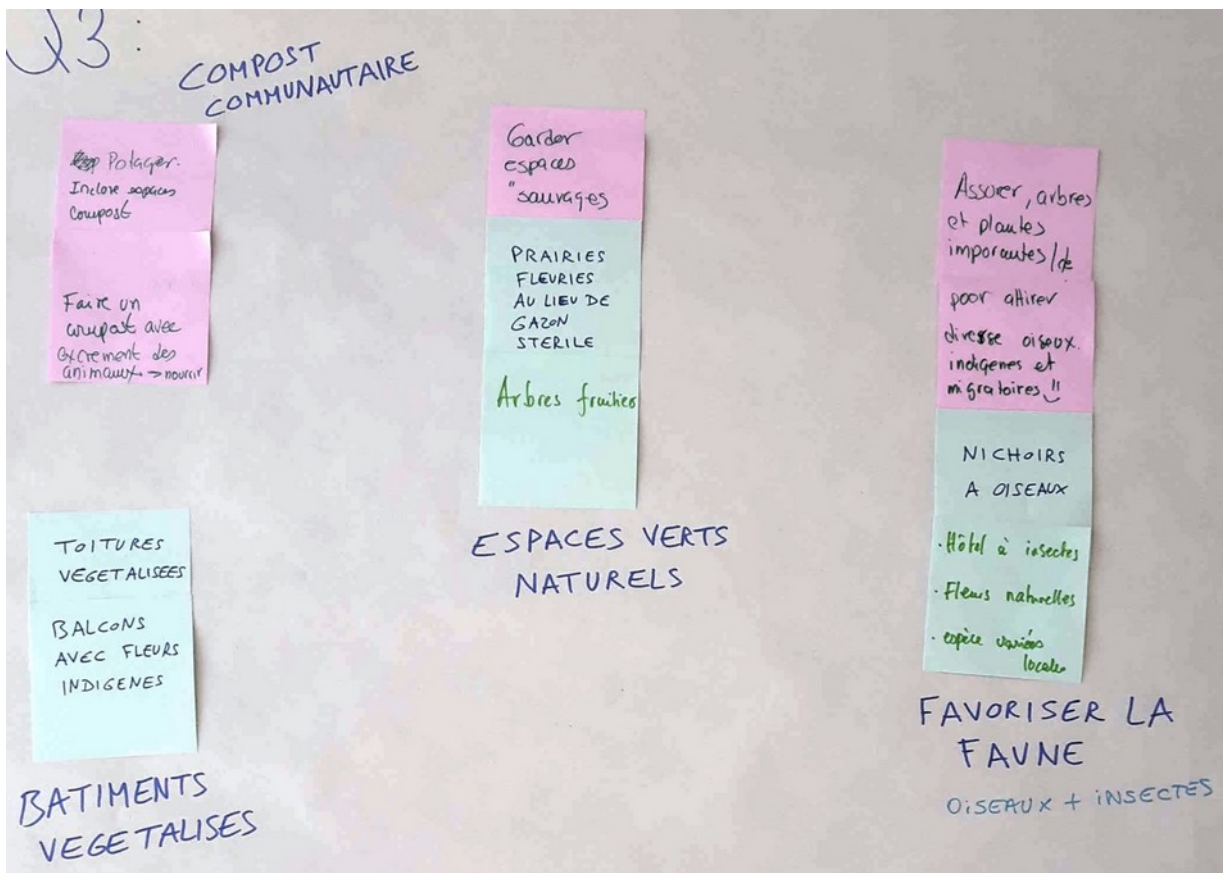 Q3 :
COMPOST
COMMUNAUTAIRE
Potager.
Inclore espaces
Compost
Faire un
compost avec
excrement des
animaux → nourrir
TOITURES
VEGETALISEES
BALCONS
AVEC FLEURS
INDIGENES
BATIMENTS
VEGETALISES
Garder
espaces
"sauvages
PRAIRIES
FLEURIES
AU LIEU DE
GAZON
STERILE
Arbres fruitiers
ESPACES VERTS
NATURELS
Assurer, arbres
et plantes
imporantes/de
poor attirer
divesse oiseux.
indigenes et
migratoires !!
NICHOIRS
A OISEAUX
· Hôtel à insectes
· Fleurs naturelles
· espèce variées
locales
FAVORISER LA
FAUNE
OISEAUX + INSECTES